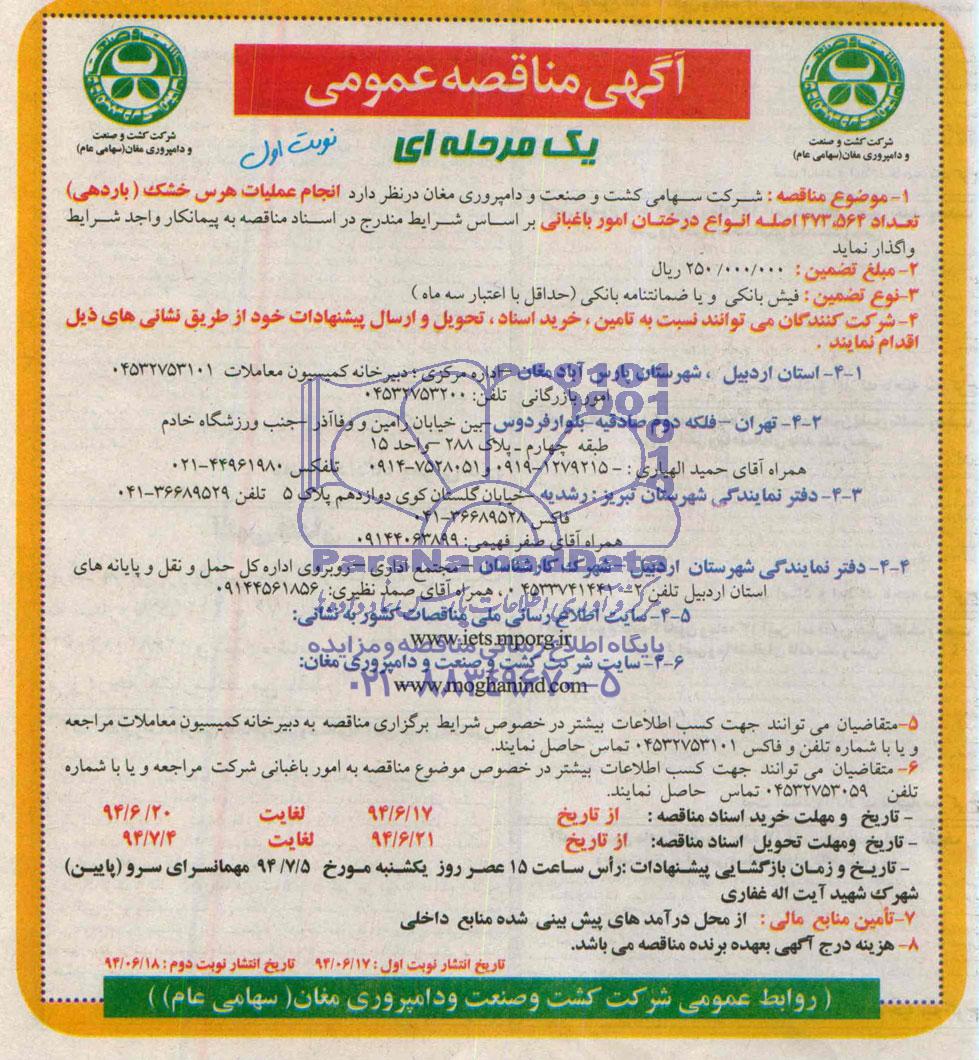 آگهی مناقصه عمومی
یک مرحله ای
نوبت اول
شرکت کشت و صنعت
و دامپروری مغان(سهامی عام)
شرکت کشت و صنعت
و دامپروری مغان(سهامی عام)
۱- موضوع مناقصه : شرکت سهامی کشت و صنعت و دامپروری مغان درنظر دارد انجام عملیات هرس خشک ( باردهی)
تعداد ۴۷۳،۵۶۴ اصله انواع درختان امور باغبانی بر اساس شرایط مندرج در اسناد مناقصه به پیمانکار واجد شرایط
واگذار نماید
۲- مبلغ تضمین : ۲۵۰/۰۰۰/۰۰۰ ریال
۳-نوع تضمین : فیش بانکی و یا ضمانتنامه بانکی (حداقل با اعتبار سه ماه )
۴- شرکت کنندگان می توانند نسبت به تامین ، خرید اسناد ، تحویل و ارسال پیشنهادات خود از طریق نشانی های ذیل
اقدام نمایند .
۴-۱- استان اردبیل ، شهرستان پارس آباد مغان - اداره مرکزی : دبیرخانه کمیسیون معاملات ۰۴۵۳۲۷۵۳۱۰۱
امور بازرگانی تلفن: ۰۴۵۳۲۷۵۳۲۰۰
۴-۲- تهران - فلکه دوم صادقیه -بلوار فردوس -بین خیابان رامین و وفاآذر -جنب ورزشگاه خادم
طبقه چهارم - پلاک ۲۸۸ - واحد ۱۵
همراه آقای حمید الهیاری : - ۱۲۷۹۲۱۵-۰۹۱۹ و ۷۵۲۸۰۵۱-۰۹۱۴ تلفکس ۴۴۹۶۱۹۸۰-۰۲۱
۴-۳- دفتر نمایندگی شهرستان تبریز : رشدیه - خیابان گلستان کوی دوازدهم پلاک ۵ تلفن ۳۶۶۸۹۵۲۹-۰۴۱
فاکس ۳۶۶۸۹۵۲۸-۰۴۱
همراه آقای صفر فهیمی: ۰۹۱۴۴۰۶۳۸۹۹
ParsNamadData
۴-۴- دفتر نمایندگی شهرستان اردبیل - شهرک کارشناسان - مجتمع اداری - روبروی اداره کل حمل و نقل و پایانه های
استان اردبیل تلفن ۲-۰۴۵۳۳۷۴۱۴۴۱ ، همراه آقای صمد نظیری: ۰۹۱۴۴۵۶۱۸۵۶
۴-۵- سایت اطلاع رسانی ملی مناقصات کشور به نشانی:
www.iets.mporg.ir
پایگاه اطلاع رسانی مناقصه و مزایده
۴-۶- سایت شرکت کشت و صنعت و دامپروری مغان:
www.moghanind.com
۰۲۱-۸۸۳۴۹۶۷۰-۵
۵-متقاضیان می توانند جهت کسب اطلاعات بیشتر در خصوص شرایط برگزاری مناقصه به دبیرخانه کمیسیون معاملات مراجعه
و یا با شماره تلفن و فاکس ۰۴۵۳۲۷۵۳۱۰۱ تماس حاصل نمایند.
۶- متقاضیان می توانند جهت کسب اطلاعات بیشتر در خصوص موضوع مناقصه به امور باغبانی شرکت مراجعه و یا با شماره
تلفن ۰۴۵۳۲۷۵۳۰۵۹ تماس حاصل نمایند.
- تاریخ و مهلت خرید اسناد مناقصه : از تاریخ ۹۴/۶/۱۷ لغایت ۹۴/۶/۲۰
- تاریخ ومهلت تحویل اسناد مناقصه: از تاریخ ۹۴/۶/۲۱ لغایت ۹۴/۷/۴
- تاریخ و زمان بازگشایی پیشنهادات :رأس ساعت ۱۵ عصر روز یکشنبه مورخ ۹۴/۷/۵ مهمانسرای سرو (پایین)
شهرک شهید آیت اله غفاری
۷-تأمین منابع مالی : از محل درآمد های پیش بینی شده منابع داخلی
۸- هزینه درج آگهی بعهده برنده مناقصه می باشد.
تاریخ انتشار نوبت اول : ۹۴/۰۶/۱۷ تاریخ انتشار نوبت دوم : ۹۴/۰۶/۱۸
( روابط عمومی شرکت کشت وصنعت ودامپروری مغان( سهامی عام) )